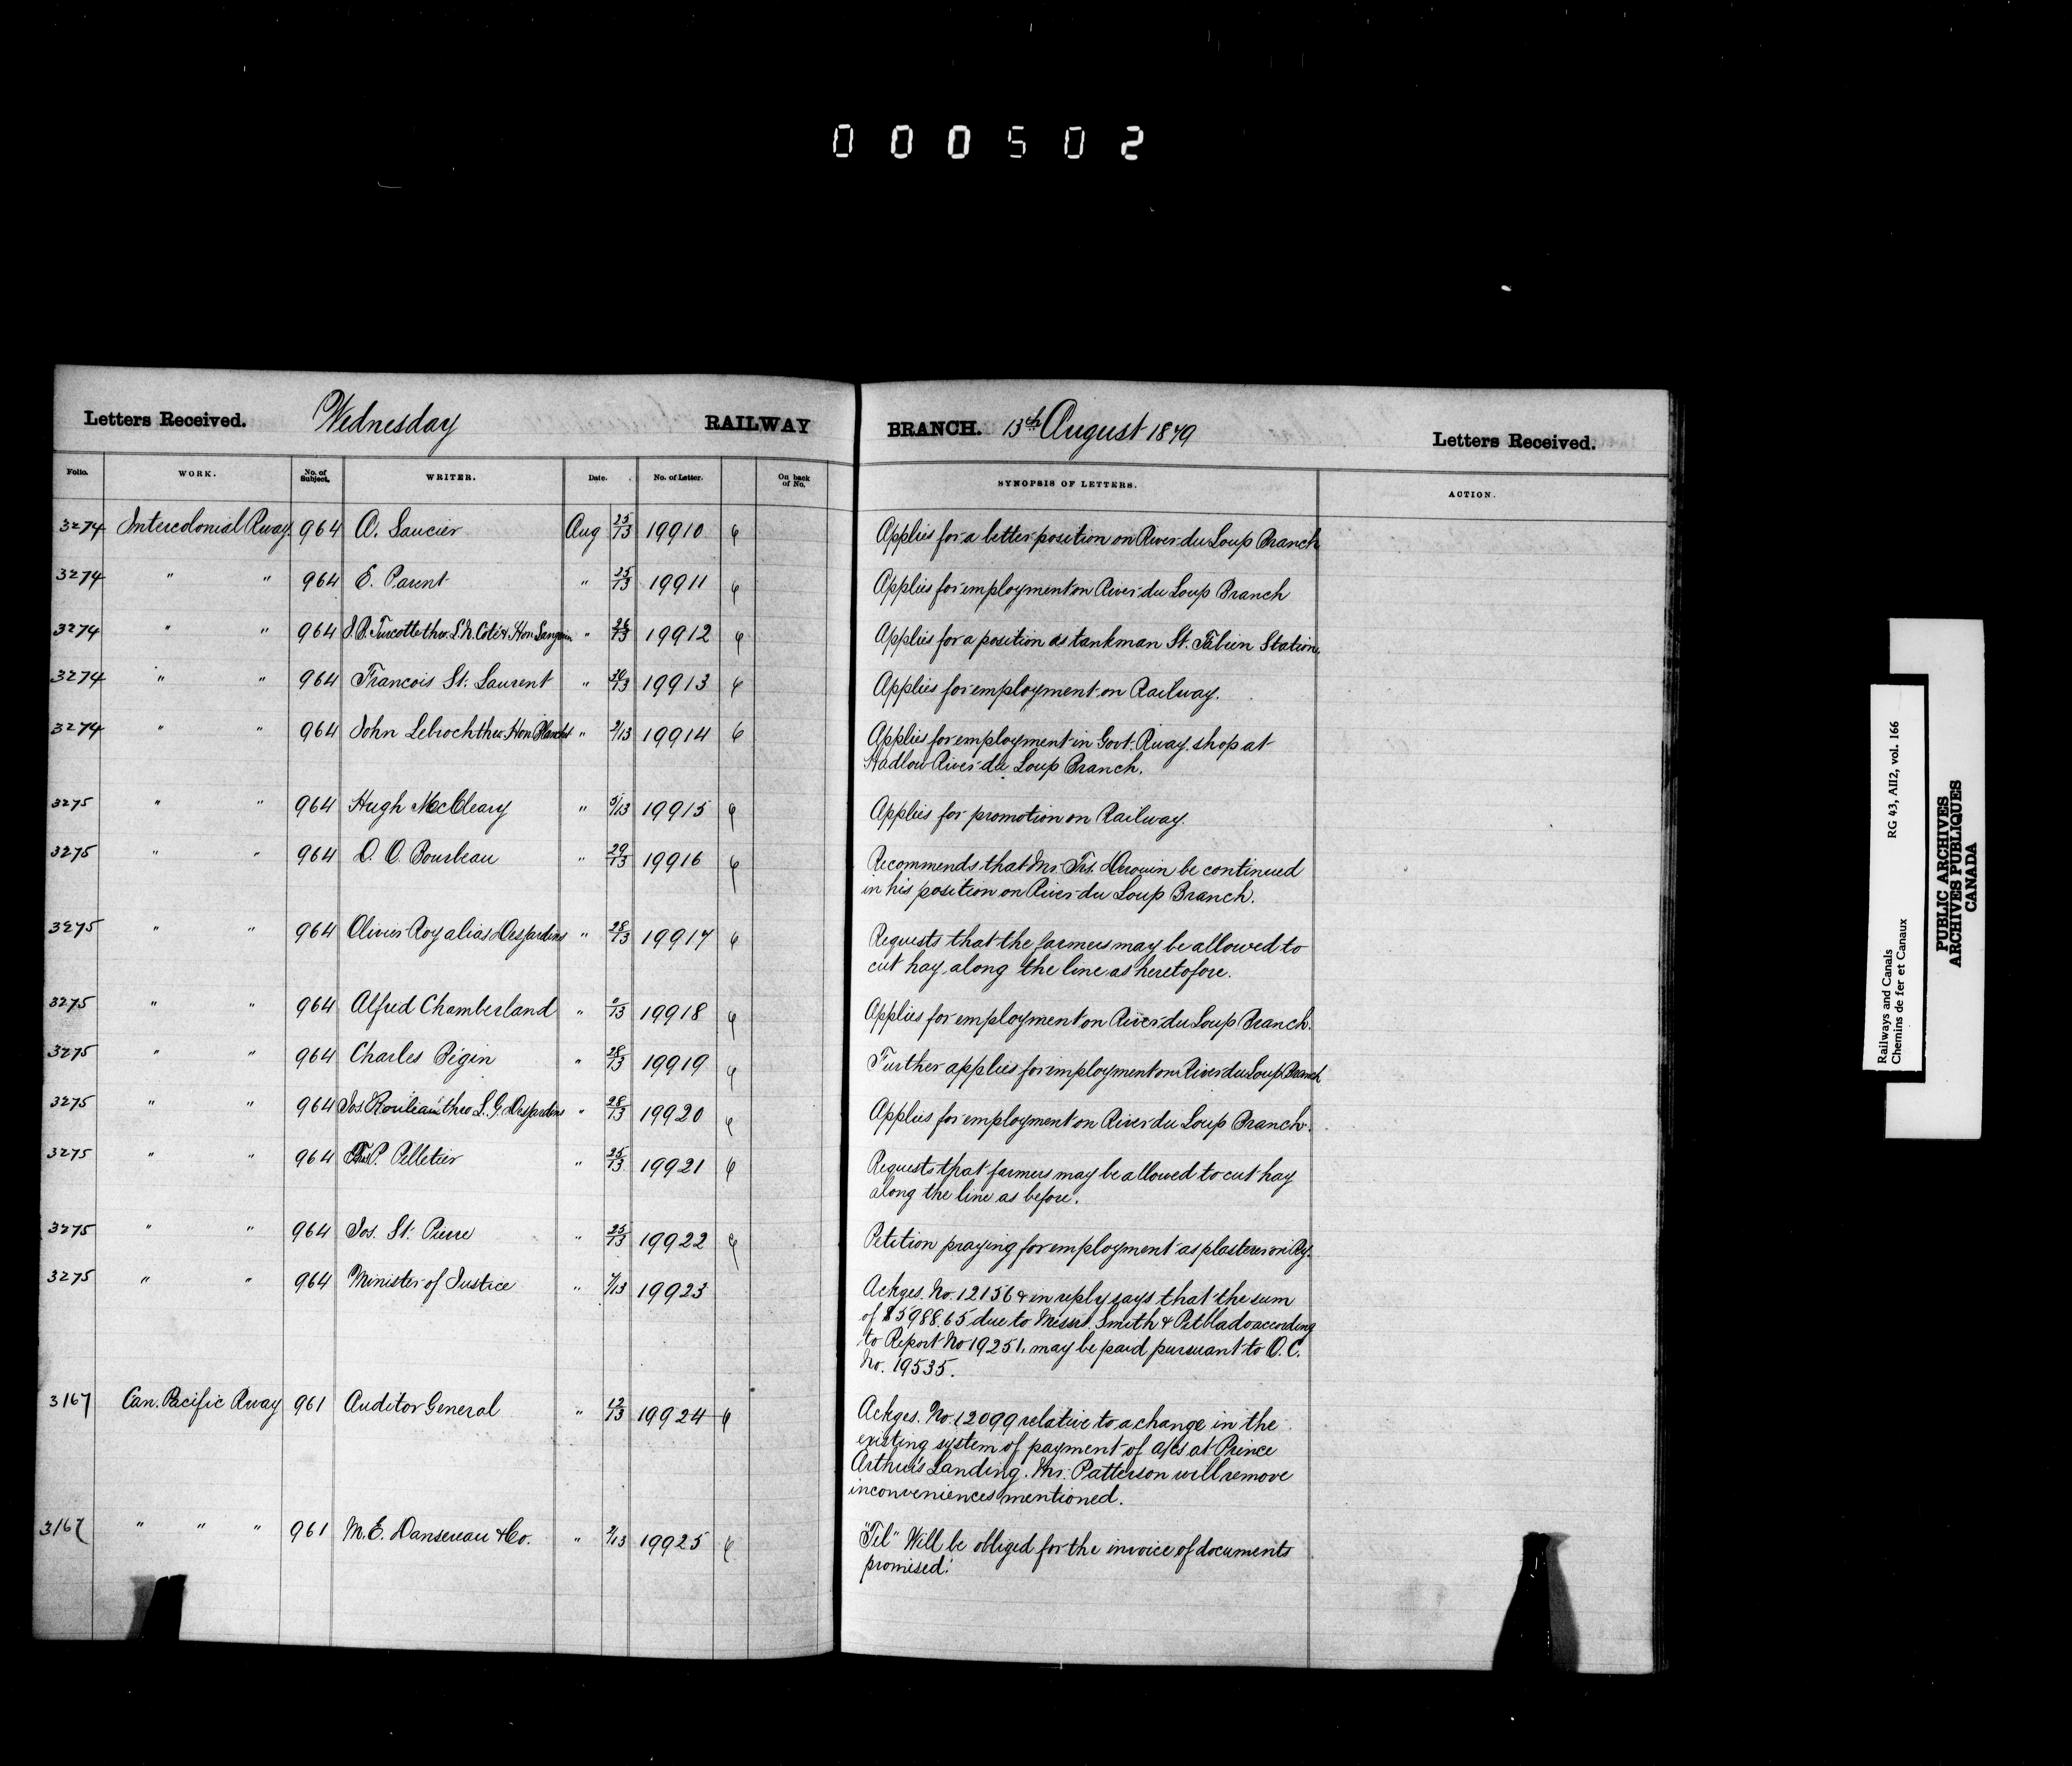 000502
Letters Received. Wednesday RAILWAY BRANCH. 13th August 1879 Letters Received.
Folio. WORK. No. of Subject. WRITER. Date. No. of Letter. On back of No. SYNOPSIS OF LETTERS. ACTION.
3274 Intercolonial Rway. 964 A. Saucier Aug 25/13 19910 Applies for a better position on River du Loup Branch
3274 " " 964 E. Parent " 25/13 19911 Applies for employment on River du Loup Branch
3274 " " 964 J.B. Turcotte thro. L.N. Coté & Hon Langevin " 26/13 19912 Applies for a position as tankman St. Fabien Station.
3274 " " 964 Francois St. Laurent " 13 19913 Applies for employment on Railway.
3274 " " 964 John thro Hon Blanchet " /13 19914 Applies for employment in Govt. Rway. shop at
Hadlow River du Loup Branch.
3275 " " 964 Hugh McCleary " /13 19915 Applies for promotion on Railway.
3275 " " 964 D. O. Bourbeau " 29/13 19916 Recommends that Mr. Frs. Drouin be continued
in his position on River du Loup Branch.
3275 " " 964 Olivier Roy alias Desjardins " 28/13 19917 Requests that the farmers may be allowed to
cut hay along the line as heretofore.
3275 " " 964 Alfred Chamberland " /13 19918 Applies for employment on River du Loup Branch.
3275 " " 964 Charles Pégin " 28/13 19919 Further applies for employment on River du Loup Branch
3275 " " 964 Jos. Rouleau thro L. G. Desjardins " 28/13 19920 Applies for employment on River du Loup Branch.
3275 " " 964 P. Pelletier " 25/13 19921 Requests that farmers may be allowed to cut hay
along the line as before.
3275 " " 964 Jos. St. Pierre " 25/13 19922 Petition praying for employment as plasterer on Ry.
3275 " " 964 Minister of Justice " /13 19923 Ackges. No. 12156 & in reply says that the sum
of $5988.65 due to Messrs. Smith & Pitblado according
to Report No 19251, may be paid pursuant to O.C.
No. 19535.
3167 Can. Pacific Rway 961 Auditor General " 12/13 19924 Ackges. No. 12099 relative to a change in the
existing system of payment of a/cs at Prince
Arthur's Landing. Mr. Patterson will remove
inconveniences mentioned.
3167 " " " 961 M.E. Dansereau & Co. " /13 19925 "Tel" Will be obliged for the invoice of documents
promised.
Railways and Canals RG 43, AII2, vol. 166
Chemins de fer et Canaux
PUBLIC ARCHIVES
ARCHIVES PUBLIQUES
CANADA